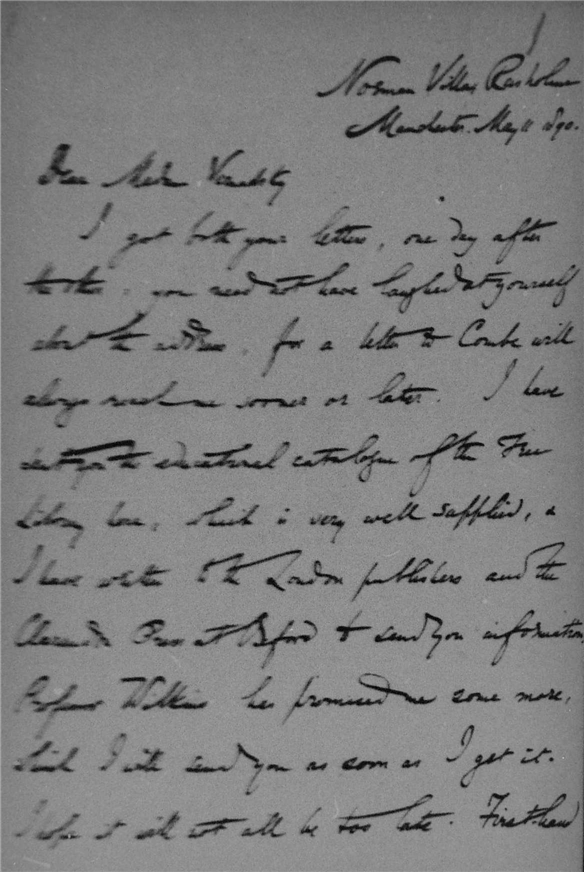 Norman Villas, Rusholme
Manchester. May 11 1890.
Dear Madam
I got both your letters, one day after
the other. you need not have laughed at yourself
about the address, for a letter to Combe will
always reach me sooner or later. I have
sent you the educational catalogue of the Free
Library here, which is very well supplied, &
I have written to the London publishers and the
Clarendon Press at Oxford to send you information,
Professor Wilkins has promised me some more,
which I will send you as soon as I get it.
I hope it will not all be too late. First-hand